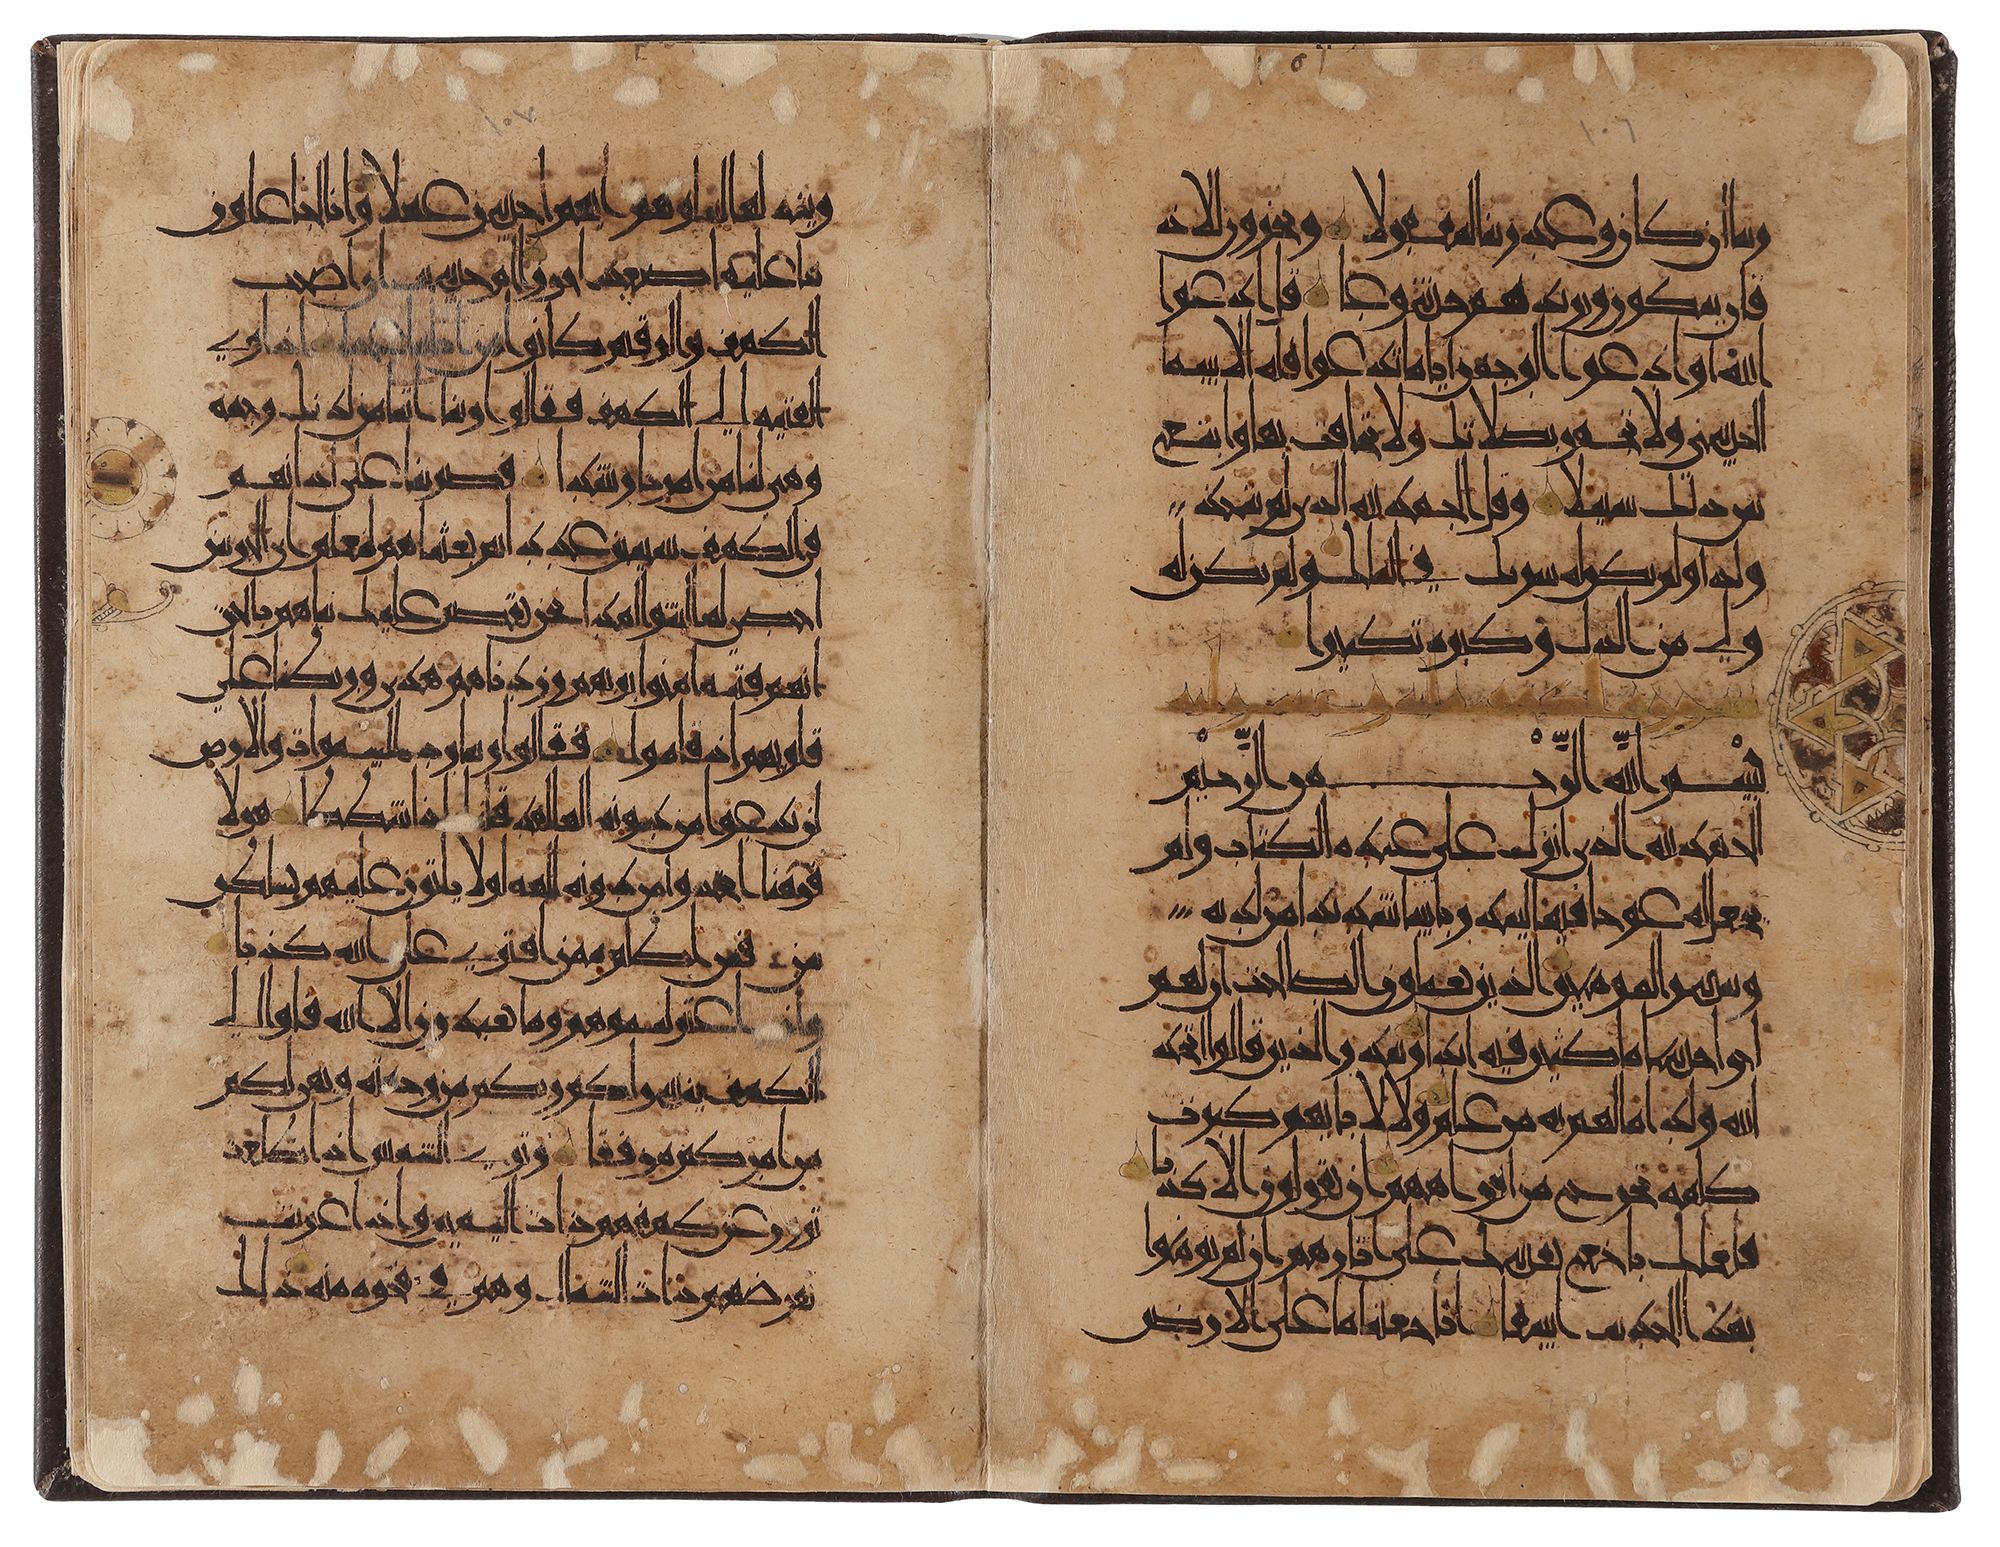 ١٠٦
ربنا ان كان وعد ربنا لمفعولا ويخرون للاذ
قان يبكون ويزيدهم خشوعا قل ادعوا
الله او ادعوا الرحمن ايا ما تدعوا فله الاسما
الحسنى ولا تجهر بصلاتك ولا تخافت بها وابتغ
بين ذلك سبيلا وقل الحمد لله الذي لم يتخذ
ولدا ولم يكن له شريك في الملك ولم يكن له
ولي من الذل وكبره تكبيرا
بِسْمِ اللَّهِ الرَّحْمن الرَّحيْم
الحمد لله الذي انزل على عبده الكتاب ولم
يجعل له عوجا قيما لينذر باسا شديدا من لدنه
ويبشر المومنين الذين يعملون الصالحات ان لهم
اجرا حسنا ماكثين فيه ابدا وينذر الذين قالوا اتخذ
الله ولدا ما لهم به من علم ولا لابايهم كبرت
كلمة تخرج من افواههم ان يقولون الا كذبا
فلعلك باخع نفسك على اثارهم ان لم يومنوا
بهذا الحديث اسفا انا جعلنا ما على الارض
١٠٧
زينة لها لنبلوهم ايهم احسن عملا وانا لجاعلون
ما عليها صعيدا جرزا ام حسبت ان اصحب
الكهف والرقيم كانوا من اياتنا عجبا اذ اوي
الفتية الي الكهف فقالوا ربنا اتنا من لدنك رحمة
وهيي لنا من امرنا رشدا فضربنا على اذانهم
في الكهف سنين عددا ثم بعثناهم لنعلم اي الحزبين
احصى لما لبثوا امدا نحن نقص عليك نباهم بالحق
انهم فتية امنوا بربهم وزدناهم هدى وربطنا على
قلوبهم اذ قاموا فقالوا ربنا رب السموات والارض
لن ندعوا من دونه الها لقد قلنا اذا شططا هولا
قومنا اتخذوا من دونه الهة لولا ياتون عليهم بسلطن
بين فمن اظلم ممن افتري على الله كذبا
واذ اعتزلتموهم وما يعبدون الا الله فاووا الي
الكهف ينشر لكم ربكم من رحمته ويهيي لكم
من امركم مرفقا وتري الشمس اذا طلعت
تزور عن كهفهم ذات اليمين واذا غربت
تقرضهم ذات الشمال وهم في فجوه منه ذلك